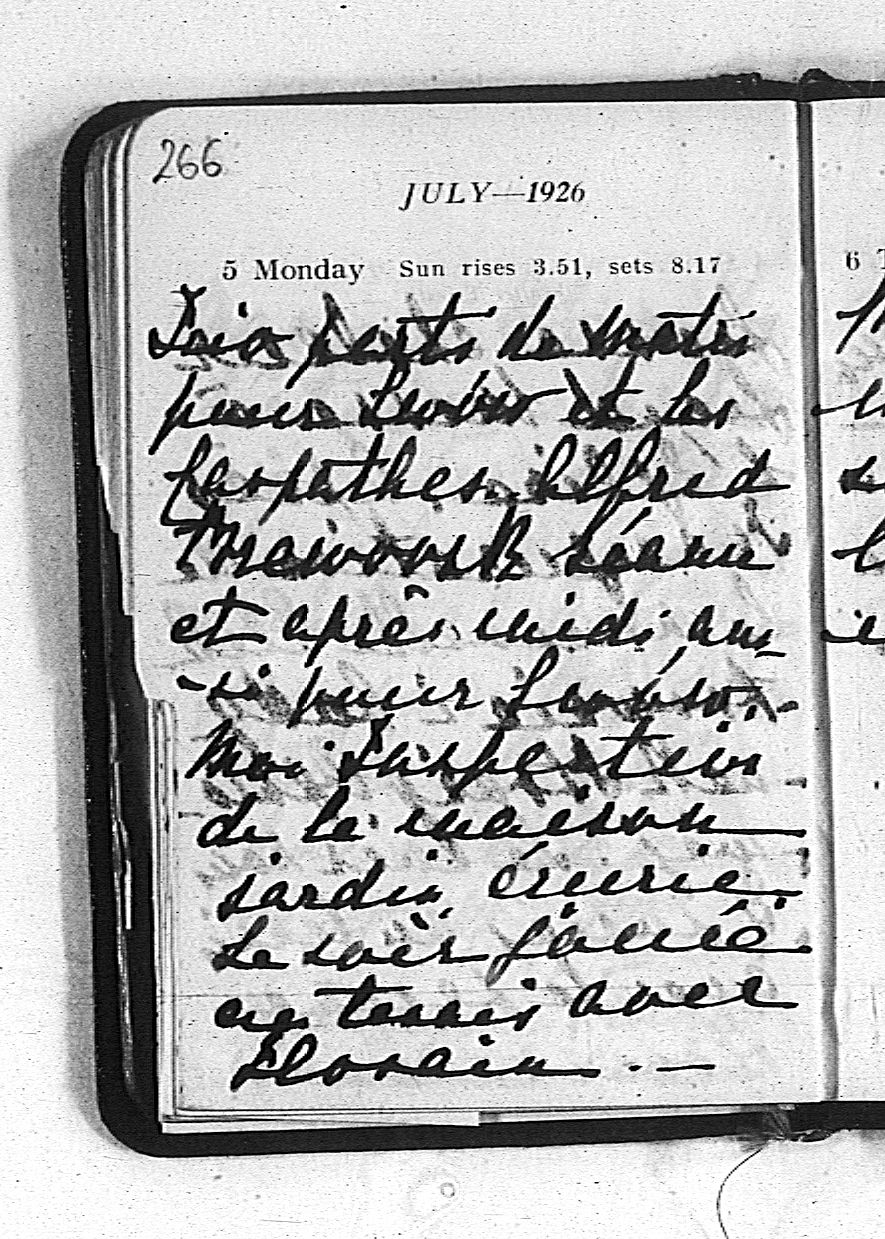 266
JULY—1926
5 Monday Sun rises 3.51, sets 8.17
6 T
parts de matin
pour Lwów et les
Carpathes. Alfred
séance
et après midi aus
-si pour Lwów. -
Moi Inspection
de la maison
jardin, écurie
Le soir joué
au tennis avec
Florain . —